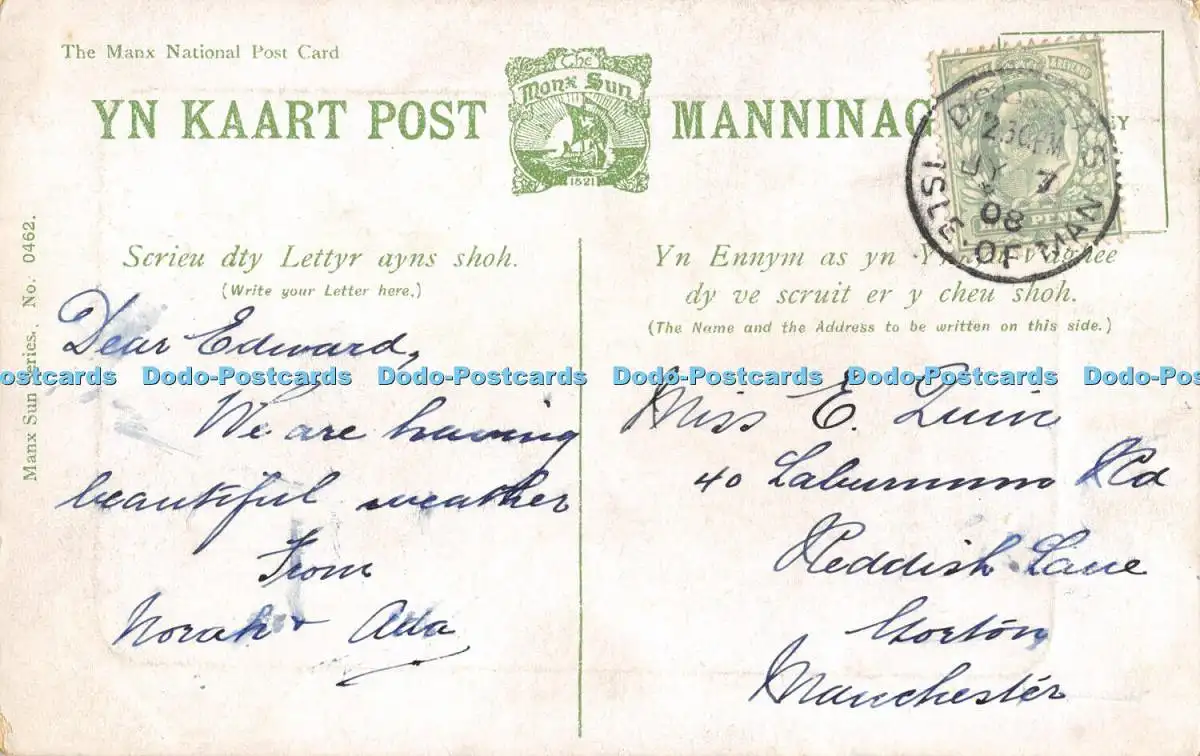 The Manx National Post Card
YN KAART POST
The
Manx Sun
1821
MANNINAGH
Manx Sun Series. No. 0462.
Scrieu dty Lettyr ayns shoh.
(Write your Letter here.)
Dear Edward,
We are having
beautiful weather
From
Norah & Ada
Yn Ennym as yn
dy ve scruit er y cheu shoh.
(The Name and the Address to be written on this side.)
Miss E. Quine
40 Laburnum Rd
Reddish Lane
Gorton
Manchester
DOUGLAS
2.30 PM
JY 7
08
ISLE OF MAN
PENNY
Dodo-Postcards Dodo-Postcards Dodo-Postcards Dodo-Postcards Dodo-Postcards Dodo-Postcards